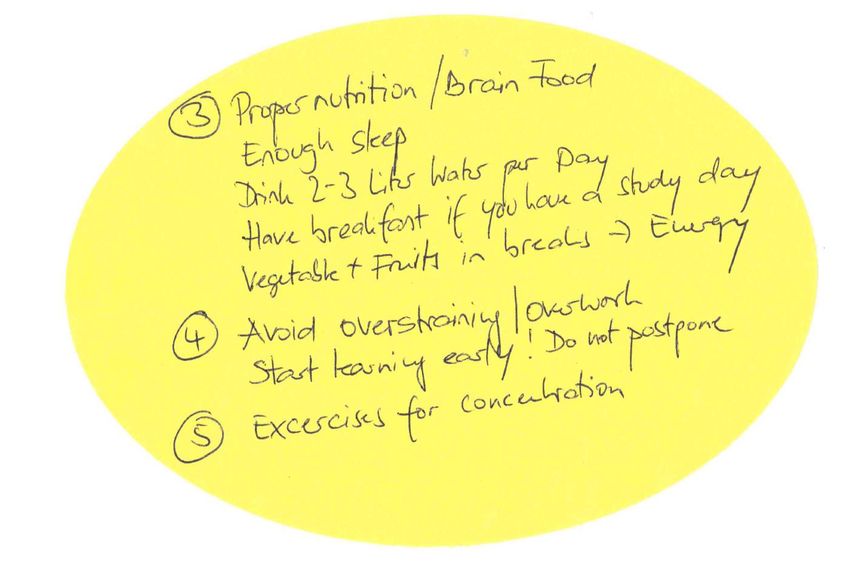 ③ Proper nutrition / Brain Food
Enough sleep
Drink 2-3 Liter Water per Day
Have breakfast if you have a study day
Vegetable + Fruits in breaks → Energy
④ Avoid overstraining / overwork
Start learning early! Do not postpone
⑤ Excercises for concentration